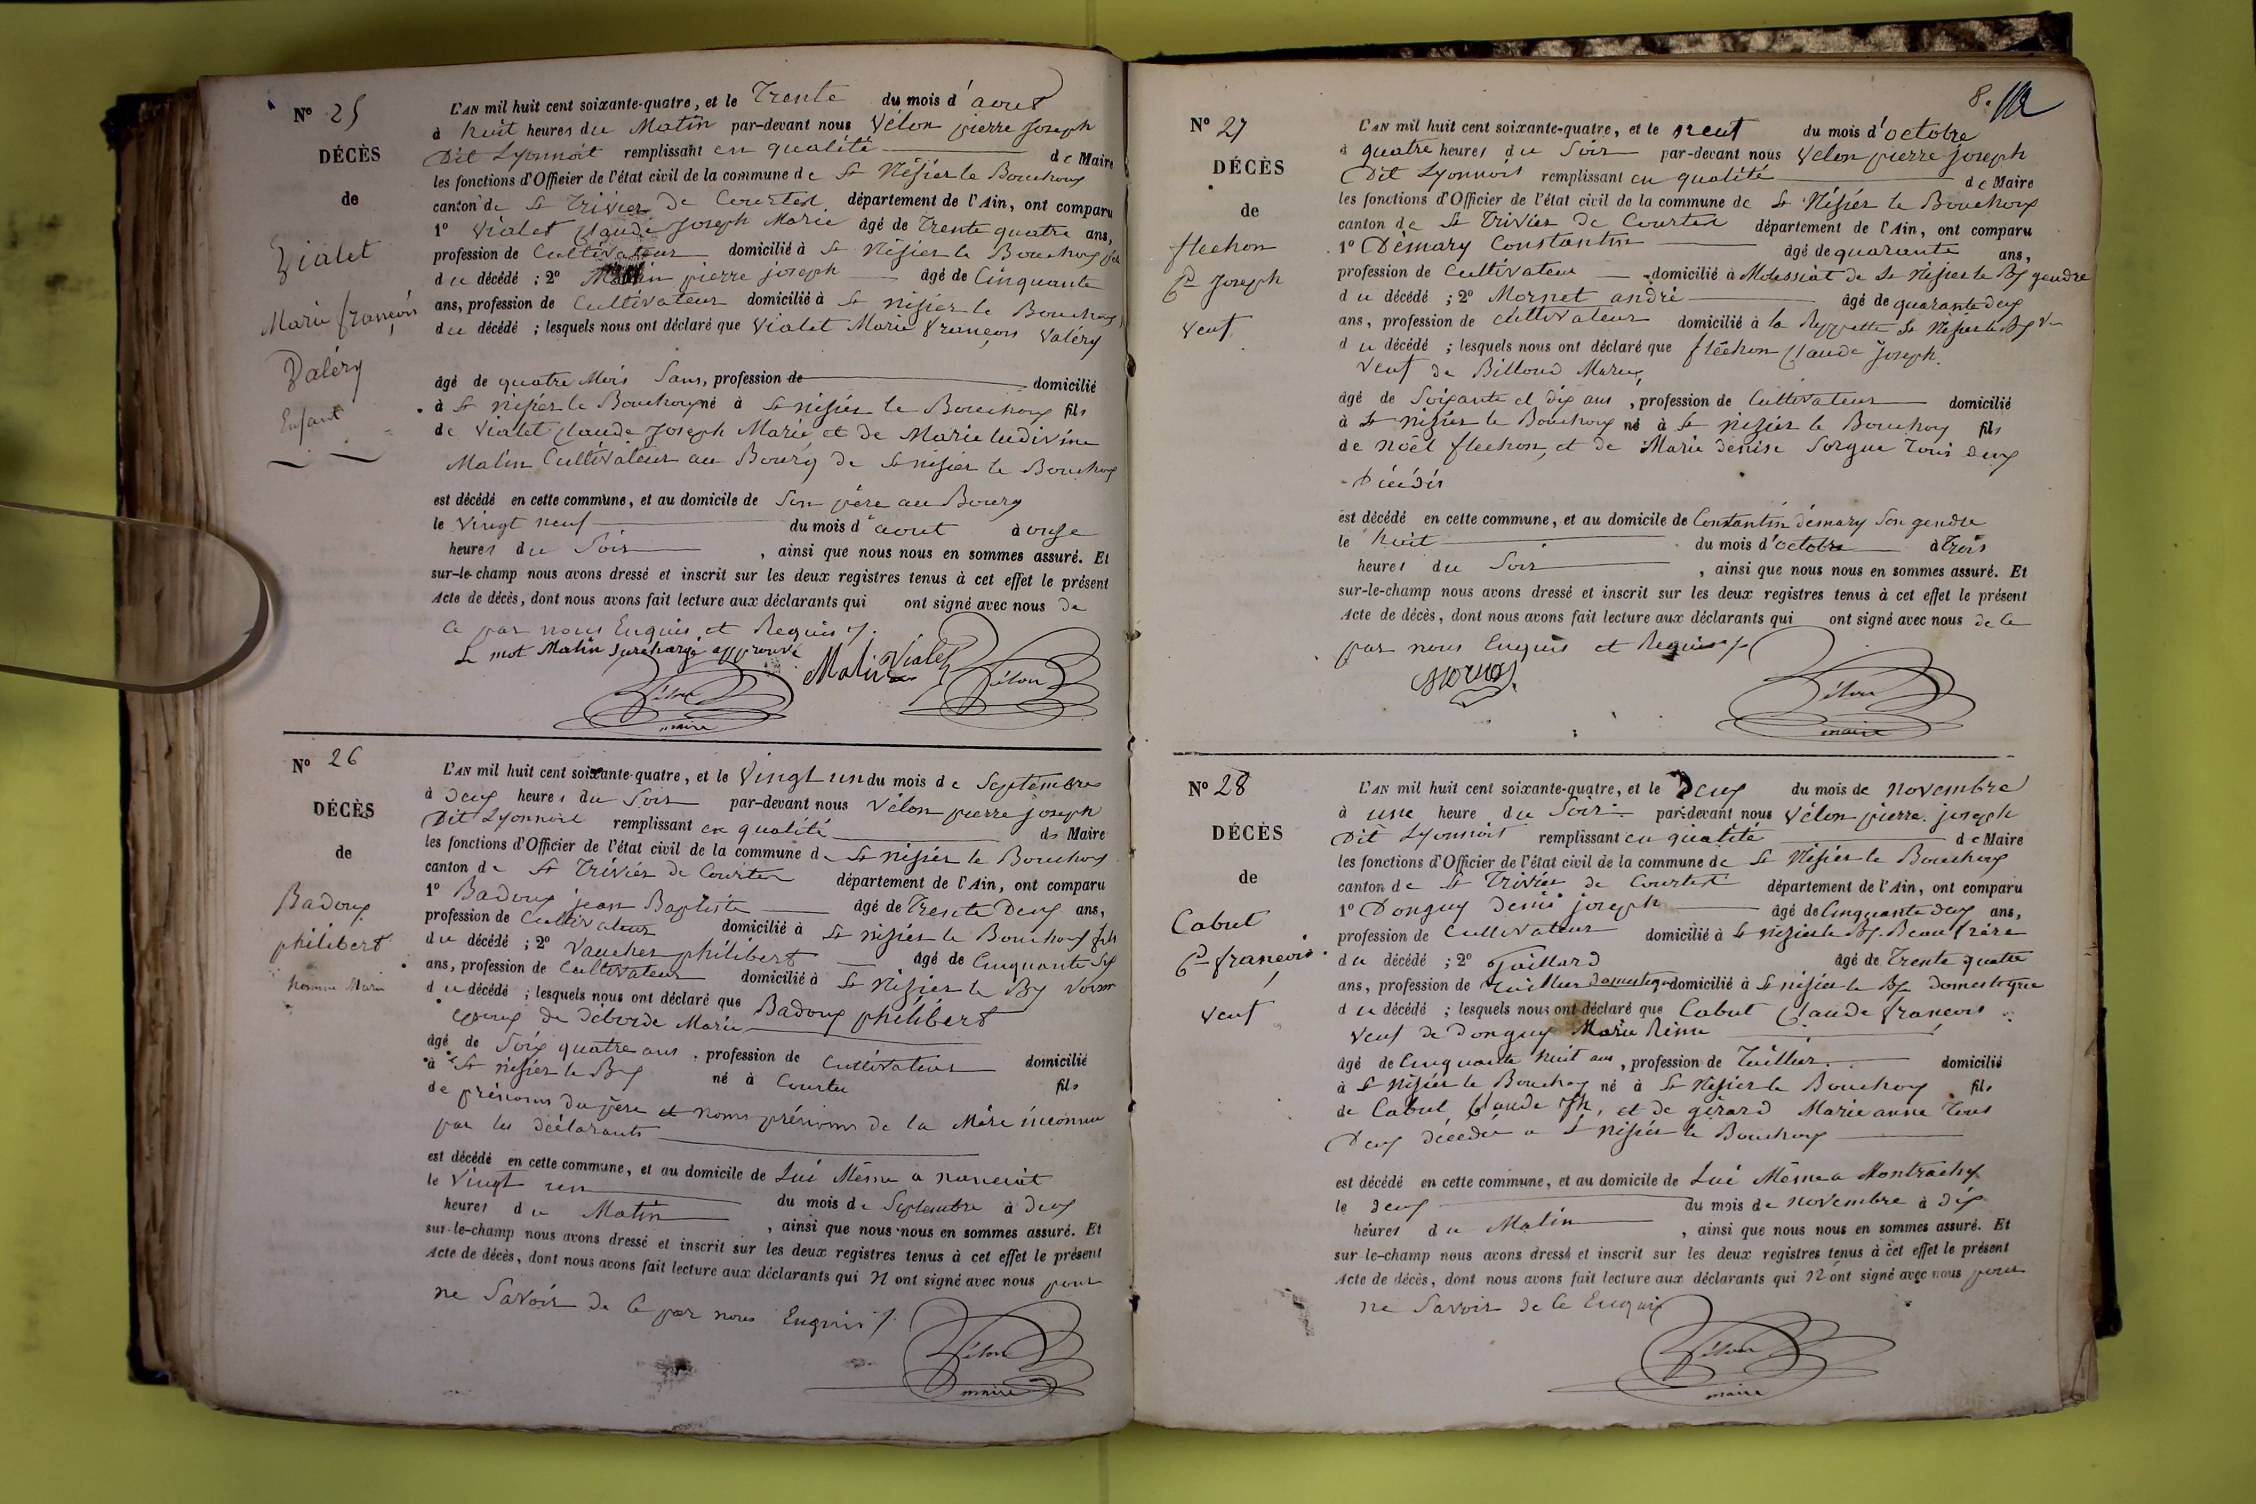 N° 25
DÉCÈS
de
Vialet
Marie françois
Valéry
Enfant
L'AN mil huit cent soixante-quatre, et le Trente du mois d'aout
à huit heures du Matin par-devant nous Vélon pierre Joseph
Dit Lyonnoit remplissant en qualité de Maire
les fonctions d'Officier de l'état civil de la commune de St Nisier le Bouchoux
canton de St Trivier de Courtes département de l'Ain, ont comparu
1° Vialet Claude Joseph Marie âgé de Trente quatre ans,
profession de Cultivateur domicilié à St Nisier le Bouchoux
du décédé ; 2° Matin pierre joseph âgé de Cinquante
ans, profession de Cultivateur domicilié à St nisier le Bouchoux
du décédé ; lesquels nous ont déclaré que Vialet Marie françois Valéry
âgé de quatre Mois Sans, profession de domicilié
à St nisier le Bouchoux né à St nisier le Bouchoux fils
de Vialet Claude Joseph Marie et de Marie ludivine
Matin Cultivateur au Bourg de St nisier le Bouchoux
est décédé en cette commune, et au domicile de Son père au Bourg
le Vingt neuf du mois d'aout à onze
heures du Soir, ainsi que nous nous en sommes assuré. Et
sur-le-champ nous avons dressé et inscrit sur les deux registres tenus à cet effet le présent
Acte de décès, dont nous avons fait lecture aux déclarants qui ont signé avec nous de
ce par nous Enquis et Requis
Le mot Matin surchargé approuvé
Matin Vialet Vélon
Vélon
maire
N° 26
DÉCÈS
de
Badoux
philibert
homme Marié
L'AN mil huit cent soixante-quatre, et le Vingt un du mois de Septembre
à deux heures du Soir par-devant nous Vélon pierre joseph
Dit Lyonnoit remplissant en qualité de Maire
les fonctions d'Officier de l'état civil de la commune de St nisier le Bouchoux
canton de St Trivier de Courtes département de l'Ain, ont comparu
1° Badoux jean Baptiste âgé de Trente Deux ans,
profession de Cultivateur domicilié à St nisier le Bouchoux fils
du décédé ; 2° Vaucher philibert âgé de Cinquante Six
ans, profession de Cultivateur domicilié à St Nisier le Bx Voisin
du décédé ; lesquels nous ont déclaré que Badoux philibert
époux de déborde Marie
âgé de Soix quatre ans, profession de Cultivateur domicilié
à St nisier le Bx né à Courtes fils
de prénoms du père et noms prénoms de la Mère inconnu
par les déclarants
est décédé en cette commune, et au domicile de Lui Même a
le Vingt un du mois de Septembre à deux
heures du Matin, ainsi que nous nous en sommes assuré. Et
sur-le-champ nous avons dressé et inscrit sur les deux registres tenus à cet effet le présent
Acte de décès, dont nous avons fait lecture aux déclarants qui n'ont signé avec nous pour
ne Savoir de ce par nous Enquis
Vélon
maire
8.
N° 27
DÉCÈS
de
flechon
Cde Joseph
Veuf
L'AN mil huit cent soixante-quatre, et le neuf du mois d'octobre
à quatre heures du Soir par-devant nous Vélon pierre joseph
Dit Lyonnoit remplissant en qualité de Maire
les fonctions d'Officier de l'état civil de la commune de St Nisier le Bouchoux
canton de St Trivier de Courtes département de l'Ain, ont comparu
1° Démary Constantin âgé de quarante ans,
profession de Cultivateur domicilié à Molessiat de St Nisier le Bx gendre
du décédé ; 2° Mornet andré âgé de quarante deux
ans, profession de cultivateur domicilié à la St Nisier le Bx
du décédé ; lesquels nous ont déclaré que fléchon Claude Joseph
Veuf de Billoud Marie
âgé de Soixante et dix ans, profession de Cultivateur domicilié
à St nisier le Bouchoux né à St nisier le Bouchoux fils
de Noël flechon, et de Marie denise Sorgue Tous deux
Décédés
est décédé en cette commune, et au domicile de Constantin démary Son gendre
le huit du mois d'octobre à Trois
heures du Soir, ainsi que nous nous en sommes assuré. Et
sur-le-champ nous avons dressé et inscrit sur les deux registres tenus à cet effet le présent
Acte de décès, dont nous avons fait lecture aux déclarants qui ont signé avec nous de ce
par nous Enquis et Requis
Vélon
maire
N° 28
DÉCÈS
de
Cabut
Cde françois
Veuf
L'AN mil huit cent soixante-quatre, et le Deux du mois de novembre
à une heure du Soir par-devant nous Vélon pierre joseph
Dit Lyonnoit remplissant en qualité de Maire
les fonctions d'Officier de l'état civil de la commune de St Nisier le Bouchoux
canton de St Trivier de Courtes département de l'Ain, ont comparu
1° Donguy denis joseph âgé de Cinquante deux ans,
profession de Cultivateur domicilié à St nizier le Bx. Beau frère
du décédé ; 2° Gaillard âgé de Trente quatre
ans, profession de domestique domicilié à St nisier le Bx domestique
du décédé ; lesquels nous ont déclaré que Cabut Claude françois
Veuf de Donguy Marie Reine
âgé de Cinquante huit ans, profession de Tuillier domicilié
à St Nisier le Bouchoux né à St Nisier le Bouchoux fils
de Cabut Claude Jh, et de gérard Marie anne Tous
Deux décédés a St nisier le Bouchoux
est décédé en cette commune, et au domicile de Lui Même a
le deux du mois de novembre à dix
heures du Matin, ainsi que nous nous en sommes assuré. Et
sur-le-champ nous avons dressé et inscrit sur les deux registres tenus à cet effet le présent
Acte de décès, dont nous avons fait lecture aux déclarants qui n'ont signé avec nous pour
ne Savoir de ce Enquis
Vélon
maire